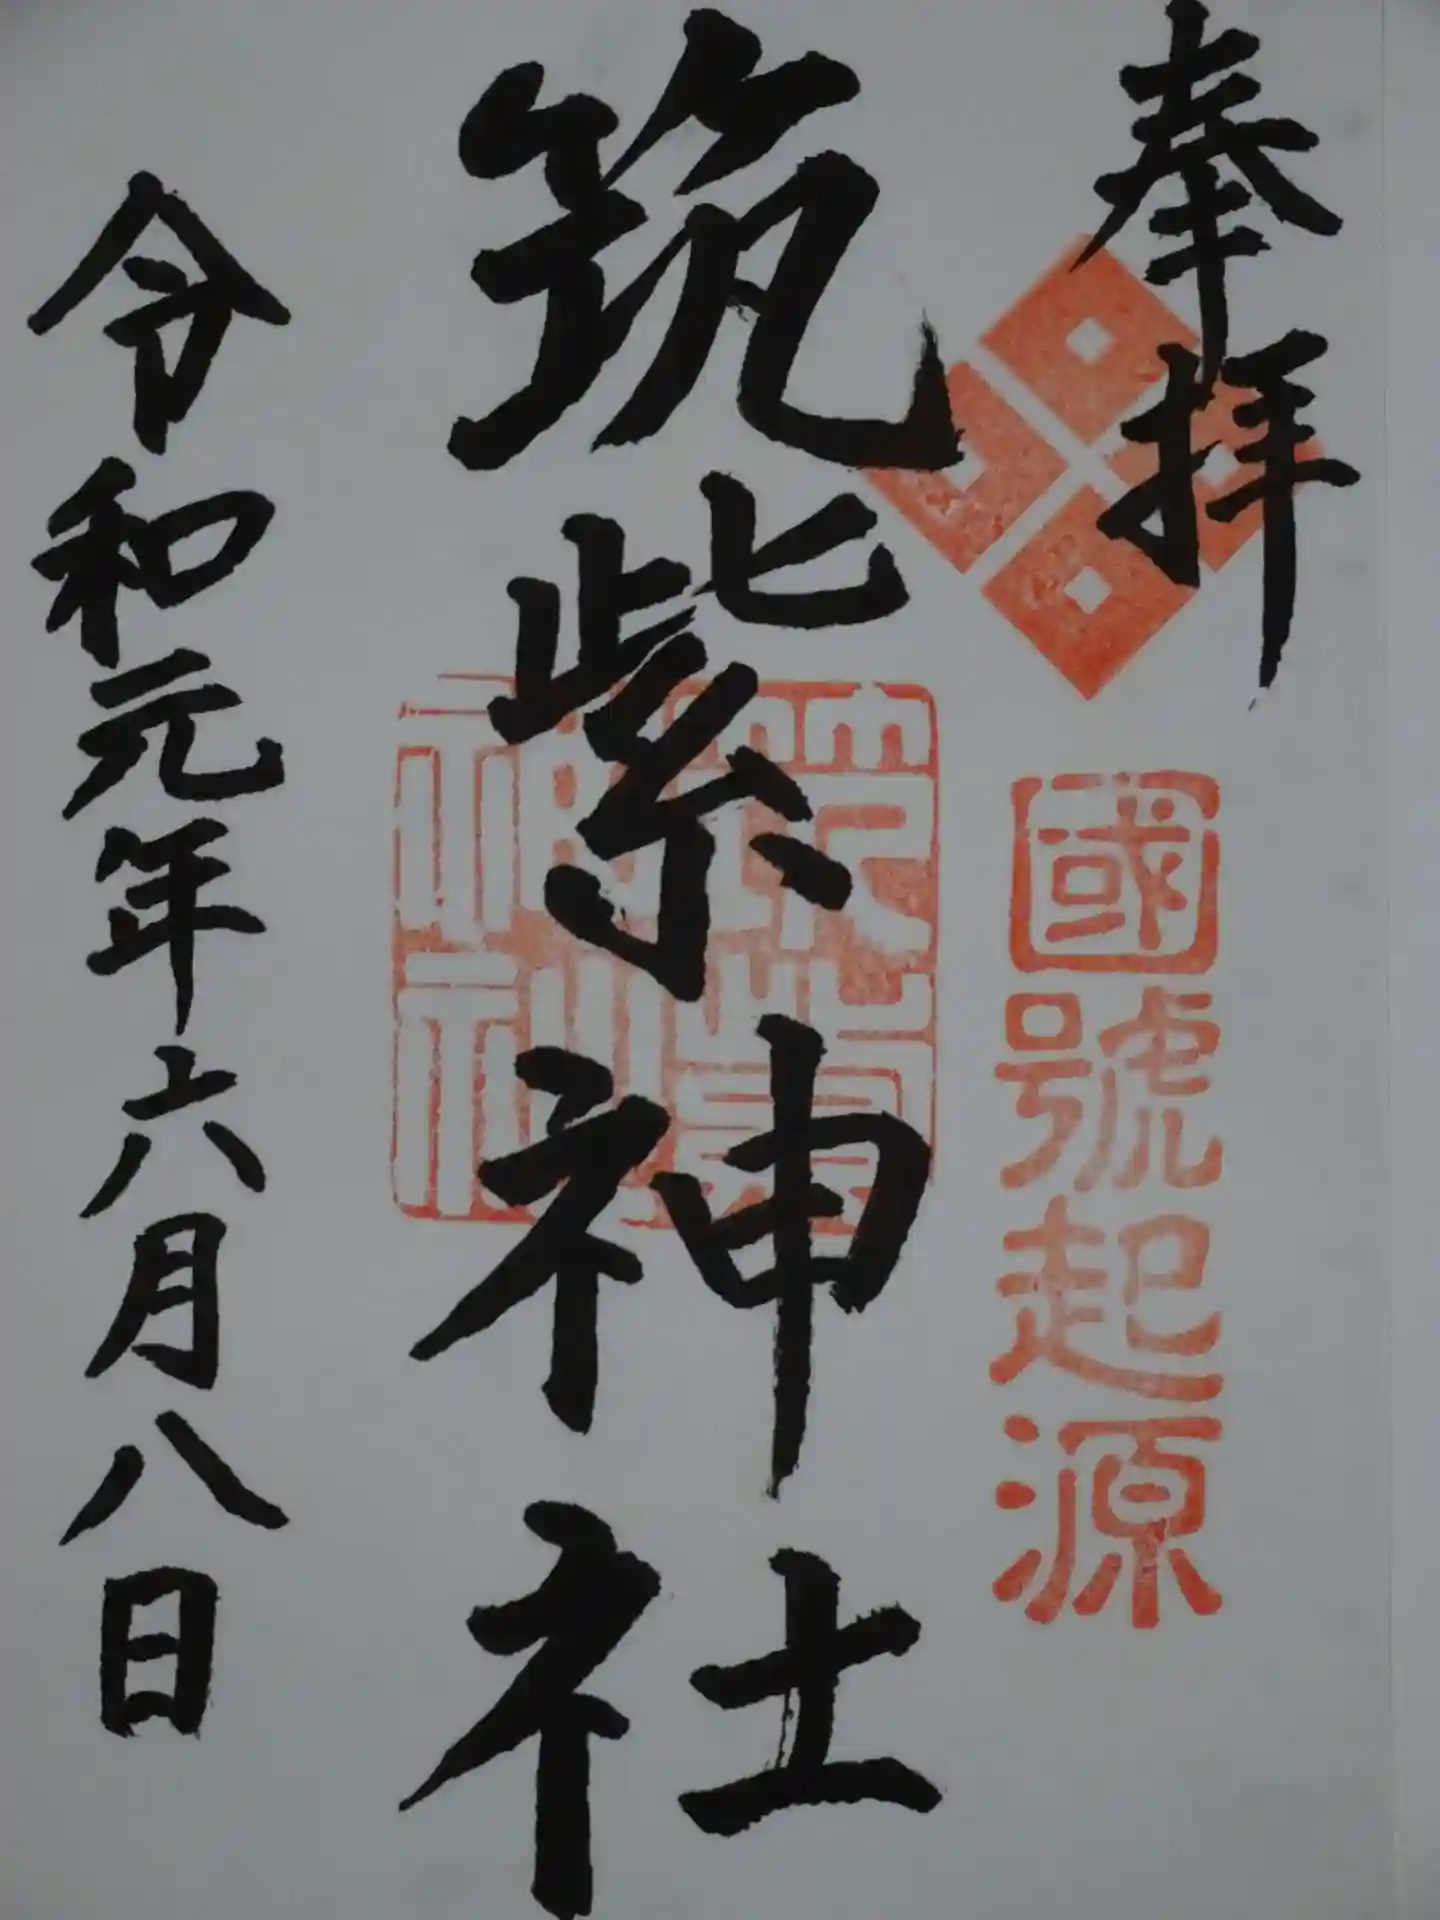 奉拝
國號起源
筑紫神社
筑紫
神社
令和元年六月八日